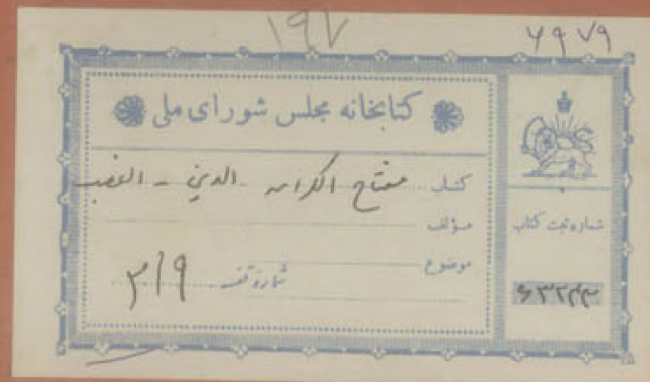 ۱۹۷
۷۹۷۹
کتابخانه مجلس شورای ملی
کتاب مفتاح الکرامه الدین - الغصب
مؤلف
موضوع
شماره قفسه ۳۱۹
شماره ثبت کتاب
۶۳۲۴۳